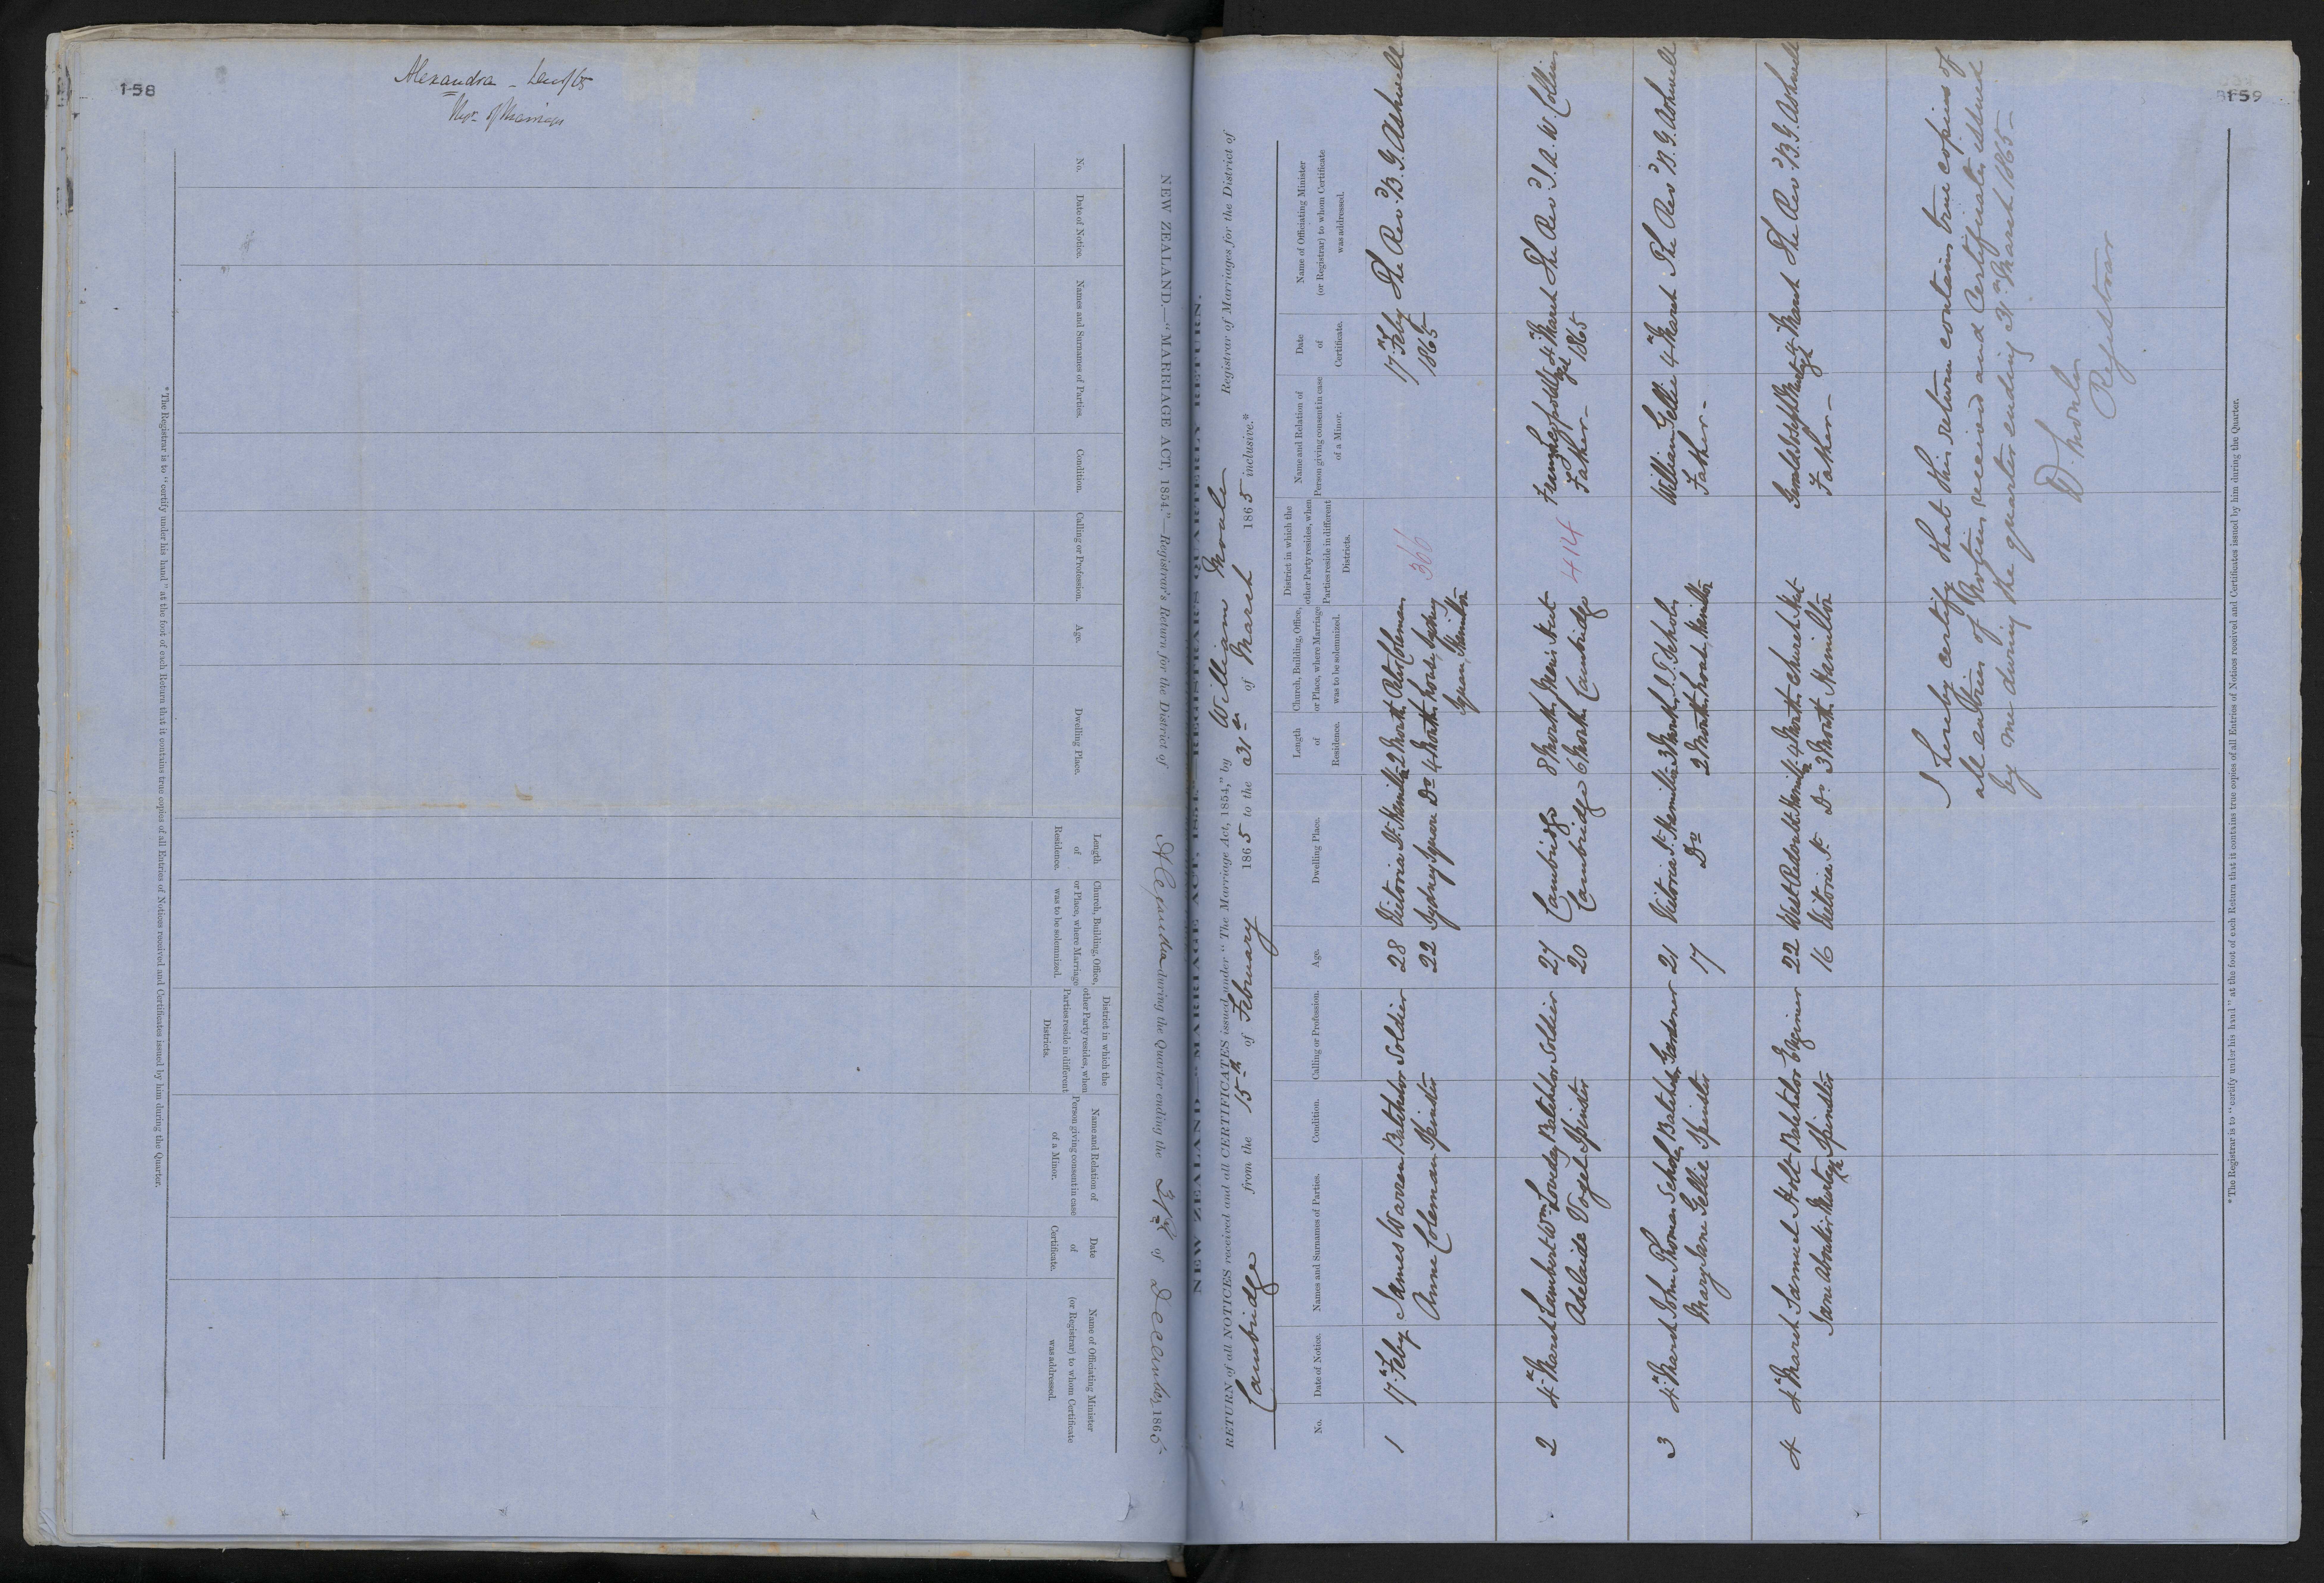 158
Alexandra
NEW ZEALAND.—"MARRIAGE ACT, 1854."—Registrar's Return for the District of Alexandra during the Quarter ending the 31st of December, 1865
No.
Date of Notice.
Names and Surnames of Parties.
Condition.
Calling or Profession.
Age.
Dwelling Place.
Length
of
Residence.
Church, Building, Office,
or Place, where Marriage
was to be solemnized.
District in which the
other Party resides, when
Parties reside in different
Districts.
Name and Relation of
Person giving consent in case
of a Minor.
Date
of
Certificate.
Name of Officiating Minister
(or Registrar) to whom Certificate
was addressed.
*The Registrar is to "certify under his hand" at the foot of each Return that it contains true copies of all Entries of Notices received and Certificates issued by him during the Quarter.
159
NEW ZEALAND.—"MARRIAGE ACT, 1854." REGISTRAR'S QUARTERLY RETURN.
RETURN of all NOTICES received and all CERTIFICATES issued under "The Marriage Act, 1854," by William Registrar of Marriages for the District of
Cambridge from the 15th of February 1865 to the 31st of March 1865 inclusive.*
No.
Date of Notice.
Names and Surnames of Parties.
Condition.
Calling or Profession.
Age.
Dwelling Place.
Length
of
Residence.
Church, Building, Office,
or Place, where Marriage
was to be solemnized.
District in which the
other Party resides, when
Parties reside in different
Districts.
Name and Relation of
Person giving consent in case
of a Minor.
Date
of
Certificate.
Name of Officiating Minister
(or Registrar) to whom Certificate
was addressed.
1 17th Feby James Warren Batchelor Soldier 28 Victoria St. Hamilton 2 Month Peter Coleman 17th Feby The Revd. B. Y. Ashwell
Anne Coleman Spinster 22 Sydney Square Do 4 Month house, Sydney 366 1865
Square, Hamilton
2 4th March Lambert Wm Batchelor Soldier 27 Cambridge 8 Month Hut 4th March The Revd J. A. W. Collin
Adelaide Vogel Spinster 20 Cambridge 6 Month Cambridge 414 Father - 1865
3 4th March John Thomas Batchelor Gardener 21 Victoria St. Hamilton 3 Month William Gellie 4th March The Revd B. Y. Ashwell
Mary Jane Gellie Spinster 17 Do 2 Month house, Hamilton Father -
4 4th March Samuel Holt Batchelor Engineer 22 West Hamilton 4 Month Church Hut 4th March The Revd B. Y. Ashwell
Jane Spinster 16 Victoria St. Do. 3 Month Hamilton Father -
I hereby certify that this return contains true copies of
all entries of Notices received and Certificates issued
by me during the quarter ending 31st March 1865 -
Registrar
*The Registrar is to "certify under his hand" at the foot of each Return that it contains true copies of all Entries of Notices received and Certificates issued by him during the Quarter.